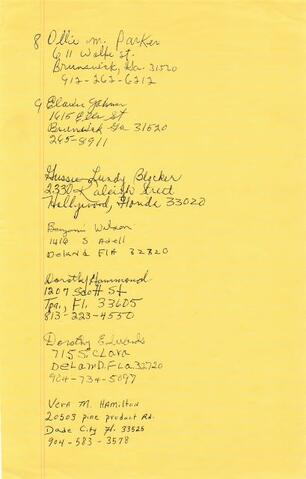 8 Ollie m. Parker
611 Wolfe st.
Brunswick, Ga. 31520
912-262-6212
9 Elaine
1615 St
Brunswick Ga 31520
265-8911
Gussie Lundy Blycker
2330 Raleigh Street
Hollywood, Florida 33020
Benjamin Wilson
1414 S Adell
Deland Fla 32720
Dorothy Hammond
1207 Scott St
Tpa, Fl. 33605
813-223-4550
Dorothy Edwards
715 S. Clara
DeLanD. Fla. 32720
904-734-5097
Vera M. Hamilton
20503 pine product Rd.
Dade City Fl. 33525
904-583-3578